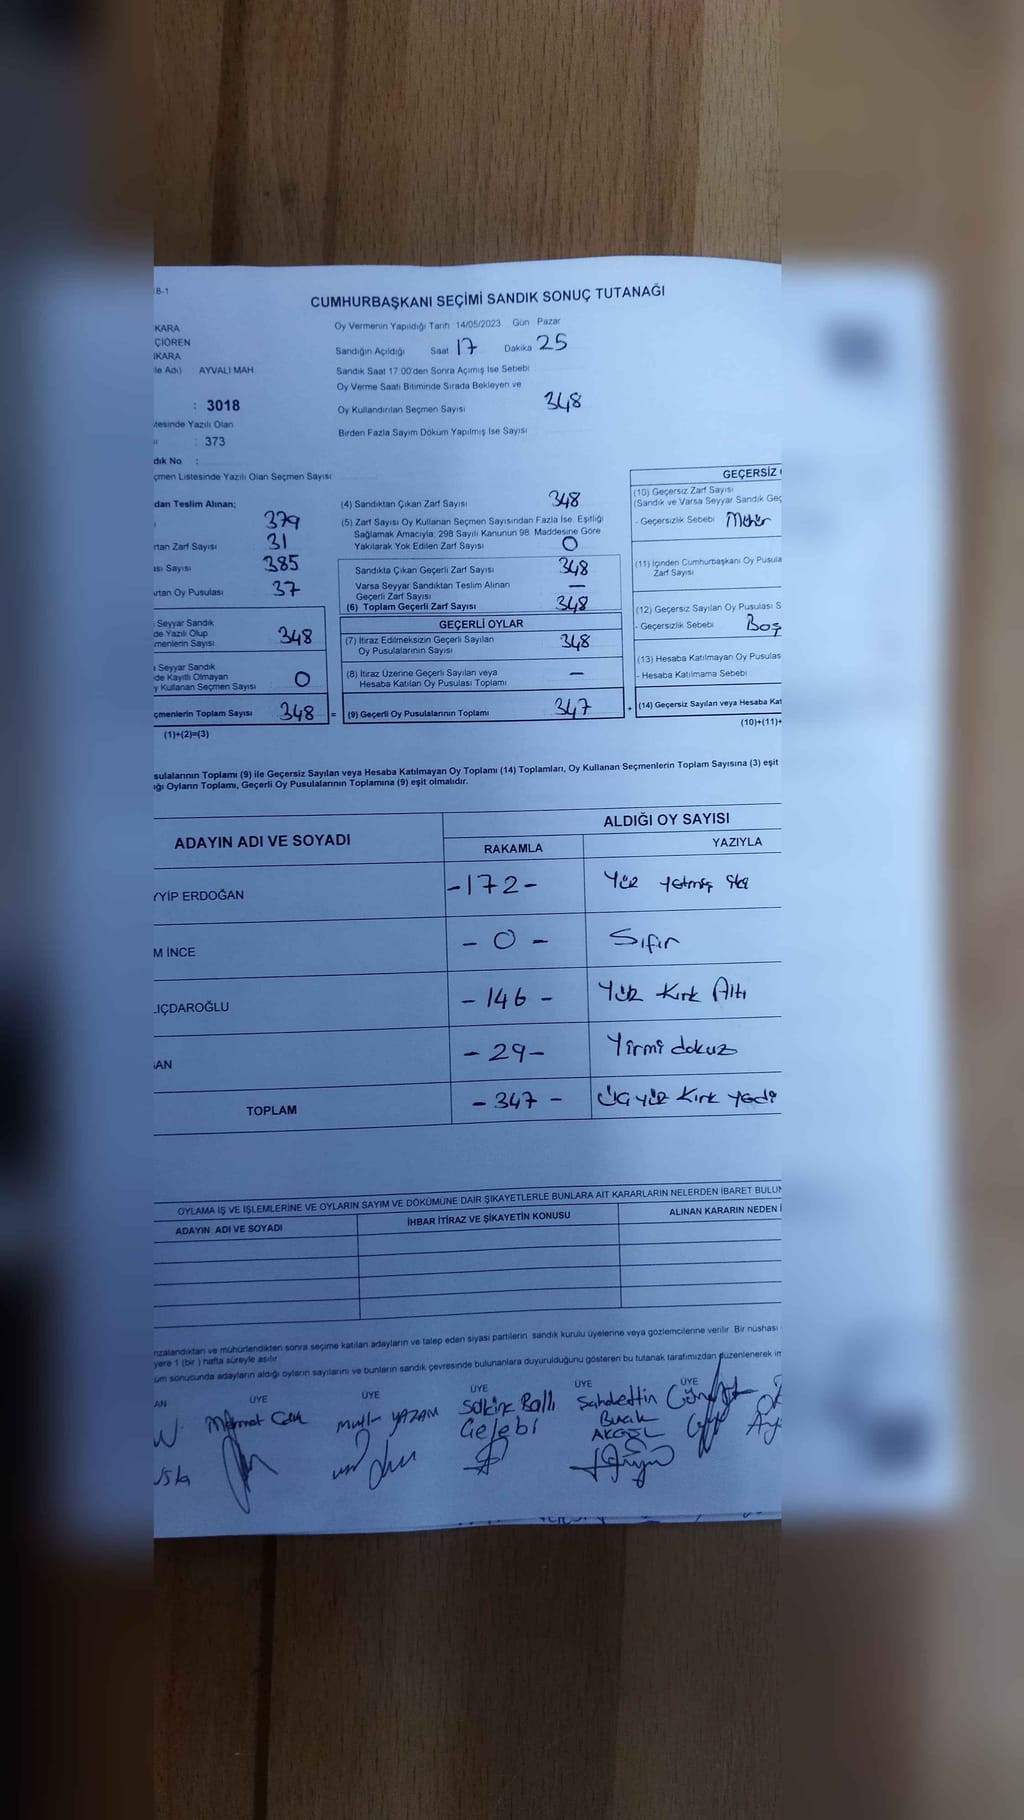 B-1
CUMHURBAŞKANI SEÇİMİ SANDIK SONUÇ TUTANAĞI
KARA
ÇİÖREN
IKARA
le Adı) AYVALI MAH
: 3018
tesinde Yazılı Olan
: 373
dık No :
çmen Listesinde Yazılı Olan Seçmen Sayısı
Oy Vermenin Yapıldığı Tarih 14/05/2023 Gün Pazar
Sandığın Açıldığı Saat 17 Dakika 25
Sandık Saat 17:00'den Sonra Açılmış İse Sebebi
Oy Verme Saati Bitiminde Sırada Bekleyen ve
Oy Kullandırılan Seçmen Sayısı 348
Birden Fazla Sayım Döküm Yapılmış İse Sayısı
dan Teslim Alınan;
379
rtan Zarf Sayısı 31
ası Sayısı 385
rtan Oy Pusulası 37
Seyyar Sandık
de Yazılı Olup
menlerin Sayısı 348
Seyyar Sandık
de Kayıtlı Olmayan
y Kullanan Seçmen Sayısı 0
çmenlerin Toplam Sayısı 348 =
(1)+(2)=(3)
(4) Sandıktan Çıkan Zarf Sayısı 348
(5) Zarf Sayısı Oy Kullanan Seçmen Sayısından Fazla İse, Eşitliği
Sağlamak Amacıyla, 298 Sayılı Kanunun 98. Maddesine Göre
Yakılarak Yok Edilen Zarf Sayısı 0
Sandıkta Çıkan Geçerli Zarf Sayısı 348
Varsa Seyyar Sandıktan Teslim Alınan
Geçerli Zarf Sayısı —
(6) Toplam Geçerli Zarf Sayısı 348
GEÇERLİ OYLAR
(7) İtiraz Edilmeksizin Geçerli Sayılan
Oy Pusulalarının Sayısı 348
(8) İtiraz Üzerine Geçerli Sayılan veya
Hesaba Katılan Oy Pusulası Toplamı —
(9) Geçerli Oy Pusulalarının Toplamı 347 +
GEÇERSİZ
(10) Geçersiz Zarf Sayısı
(Sandık ve Varsa Seyyar Sandık Geç
- Geçersizlik Sebebi Mühür
(11) İçinden Cumhurbaşkanı Oy Pusula
Zarf Sayısı
(12) Geçersiz Sayılan Oy Pusulası S
- Geçersizlik Sebebi Boş
(13) Hesaba Katılmayan Oy Pusulas
- Hesaba Katılmama Sebebi
(14) Geçersiz Sayılan veya Hesaba Kat
(10)+(11)+
sulalarının Toplamı (9) ile Geçersiz Sayılan veya Hesaba Katılmayan Oy Toplamı (14) Toplamları, Oy Kullanan Seçmenlerin Toplam Sayısına (3) eşit
ğı Oyların Toplamı, Geçerli Oy Pusulalarının Toplamına (9) eşit olmalıdır.
ADAYIN ADI VE SOYADI
ALDIĞI OY SAYISI
RAKAMLA YAZIYLA
YYİP ERDOĞAN -172- Yüz yetmiş iki
M İNCE - 0 - Sıfır
LIÇDAROĞLU - 146 - Yüz Kırk Altı
AN - 29 - Yirmi dokuz
TOPLAM - 347 - Üç yüz Kırk Yedi
OYLAMA İŞ VE İŞLEMLERİNE VE OYLARIN SAYIM VE DÖKÜMÜNE DAİR ŞİKAYETLERLE BUNLARA AİT KARARLARIN NELERDEN İBARET BULUN
ADAYIN ADI VE SOYADI İHBAR İTİRAZ VE ŞİKAYETİN KONUSU ALINAN KARARIN NEDEN İ
nzalandıktan ve mühürlendikten sonra seçime katılan adayların ve talep eden siyasi partilerin sandık kurulu üyelerine veya gözlemcilerine verilir. Bir nüshası
yere 1 (bir ) hafta süreyle asılır.
üm sonucunda adayların aldığı oyların sayılarını ve bunların sandık çevresinde bulunanlara duyurulduğunu gösteren bu tutanak tarafımızdan düzenlenerek im
AN ÜYE ÜYE ÜYE ÜYE ÜYE
Mehmet YAZAM Ballı
Çelebi Burak
AKGÜL